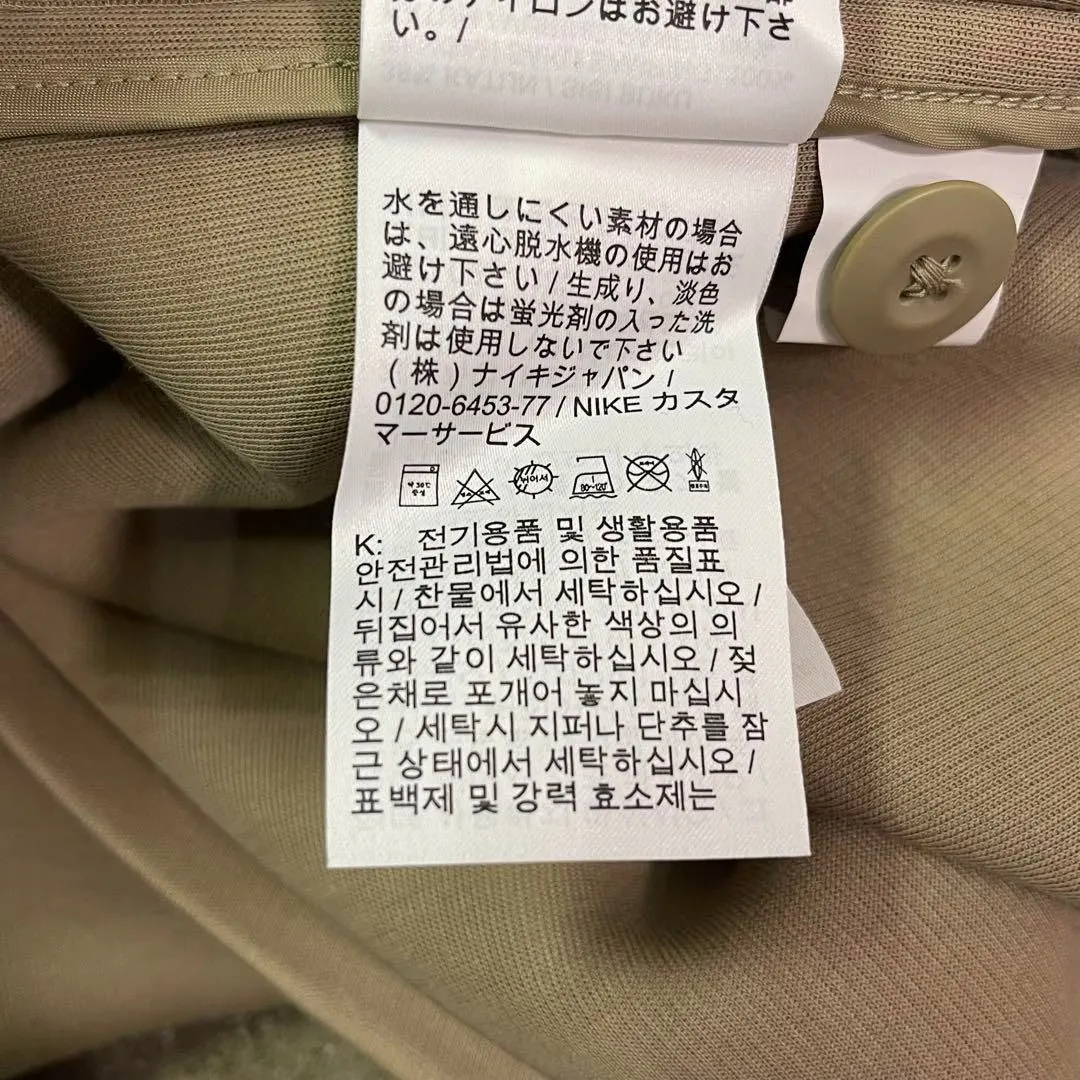 アイロンはお避け下さ
い。/
水を通しにくい素材の場合
は、遠心脱水機の使用はお
避け下さい / 生成り、淡色
の場合は蛍光剤の入った洗
剤は使用しないで下さい
(株)ナイキジャパン /
0120-6453-77 / NIKE カスタ
マーサービス
약 30℃
중성
80~120℃
K: 전기용품 및 생활용품
안전관리법에 의한 품질표
시 / 찬물에서 세탁하십시오 /
뒤집어서 유사한 색상의 의
류와 같이 세탁하십시오 / 젖
은채로 포개어 놓지 마십시
오 / 세탁시 지퍼나 단추를 잠
근 상태에서 세탁하십시오 /
표백제 및 강력 효소제는